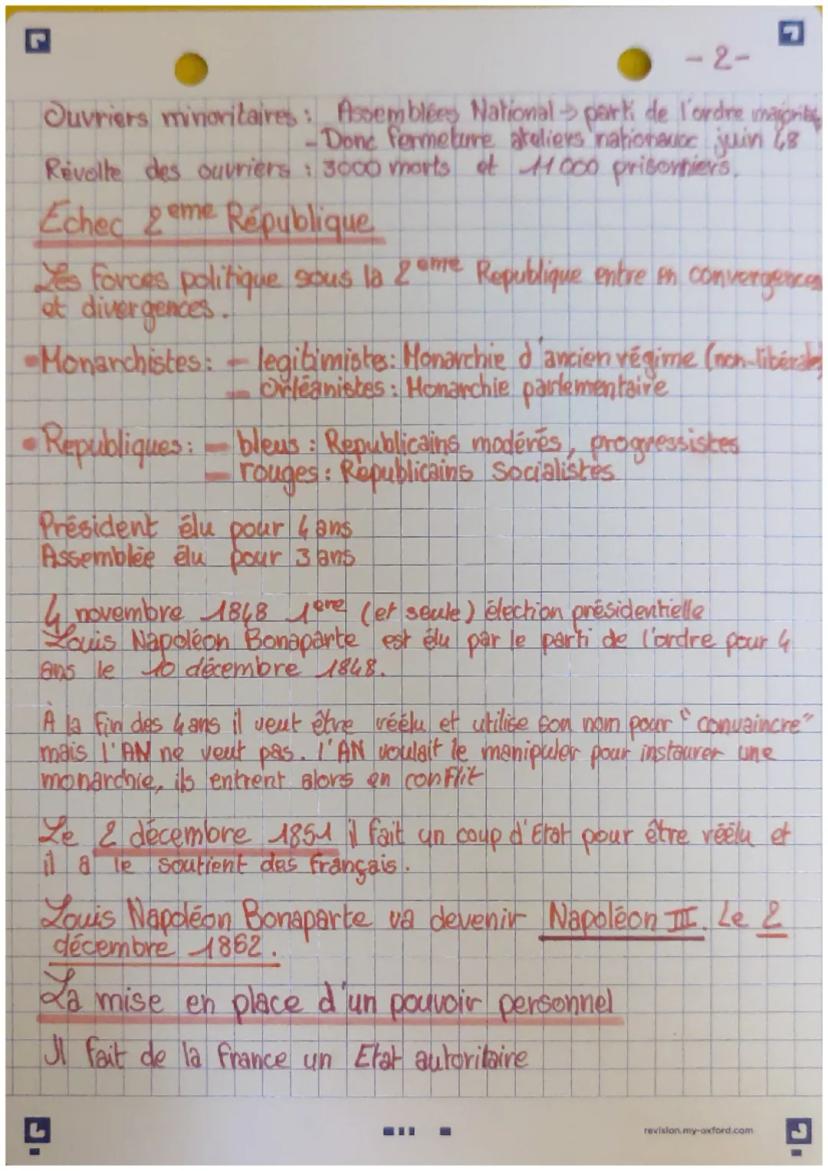 - 2 -
Ouvriers minoritaires : Assemblées National → parti de l'ordre majorité
- Donc fermeture ateliers nationaux juin 48
Révolte des ouvriers : 3000 morts et 11 000 prisonniers.
Echec 2eme République
Les forces politique sous la 2eme Republique entre en convergences
et divergences.
• Monarchistes : - legitimistes : Monarchie d'ancien régime (non-libérale)
- Orléanistes : Monarchie parlementaire
• Republiques : - bleus : Republicains modérés, progressistes
- rouges : Républicains Socialistes
Président élu pour 4 ans
Assemblée élu pour 3 ans
4 novembre 1848 1ere (et seule) élection présidentielle
Louis Napoléon Bonaparte est élu par le parti de l'ordre pour 4
ans le 10 décembre 1848.
À la fin des 4 ans il veut être réélu et utilise son nom pour "convaincre"
mais l'AN ne veut pas. l'AN voulait le manipuler pour instaurer une
monarchie, ils entrent alors en conflit
Le 2 décembre 1851 il fait un coup d'Etat pour être réélu et
il a le soutient des français.
Louis Napoléon Bonaparte va devenir Napoléon III. Le 2
décembre 1852.
La mise en place d'un pouvoir personnel
Il fait de la france un Etat autoritaire
revision.my-oxford.com